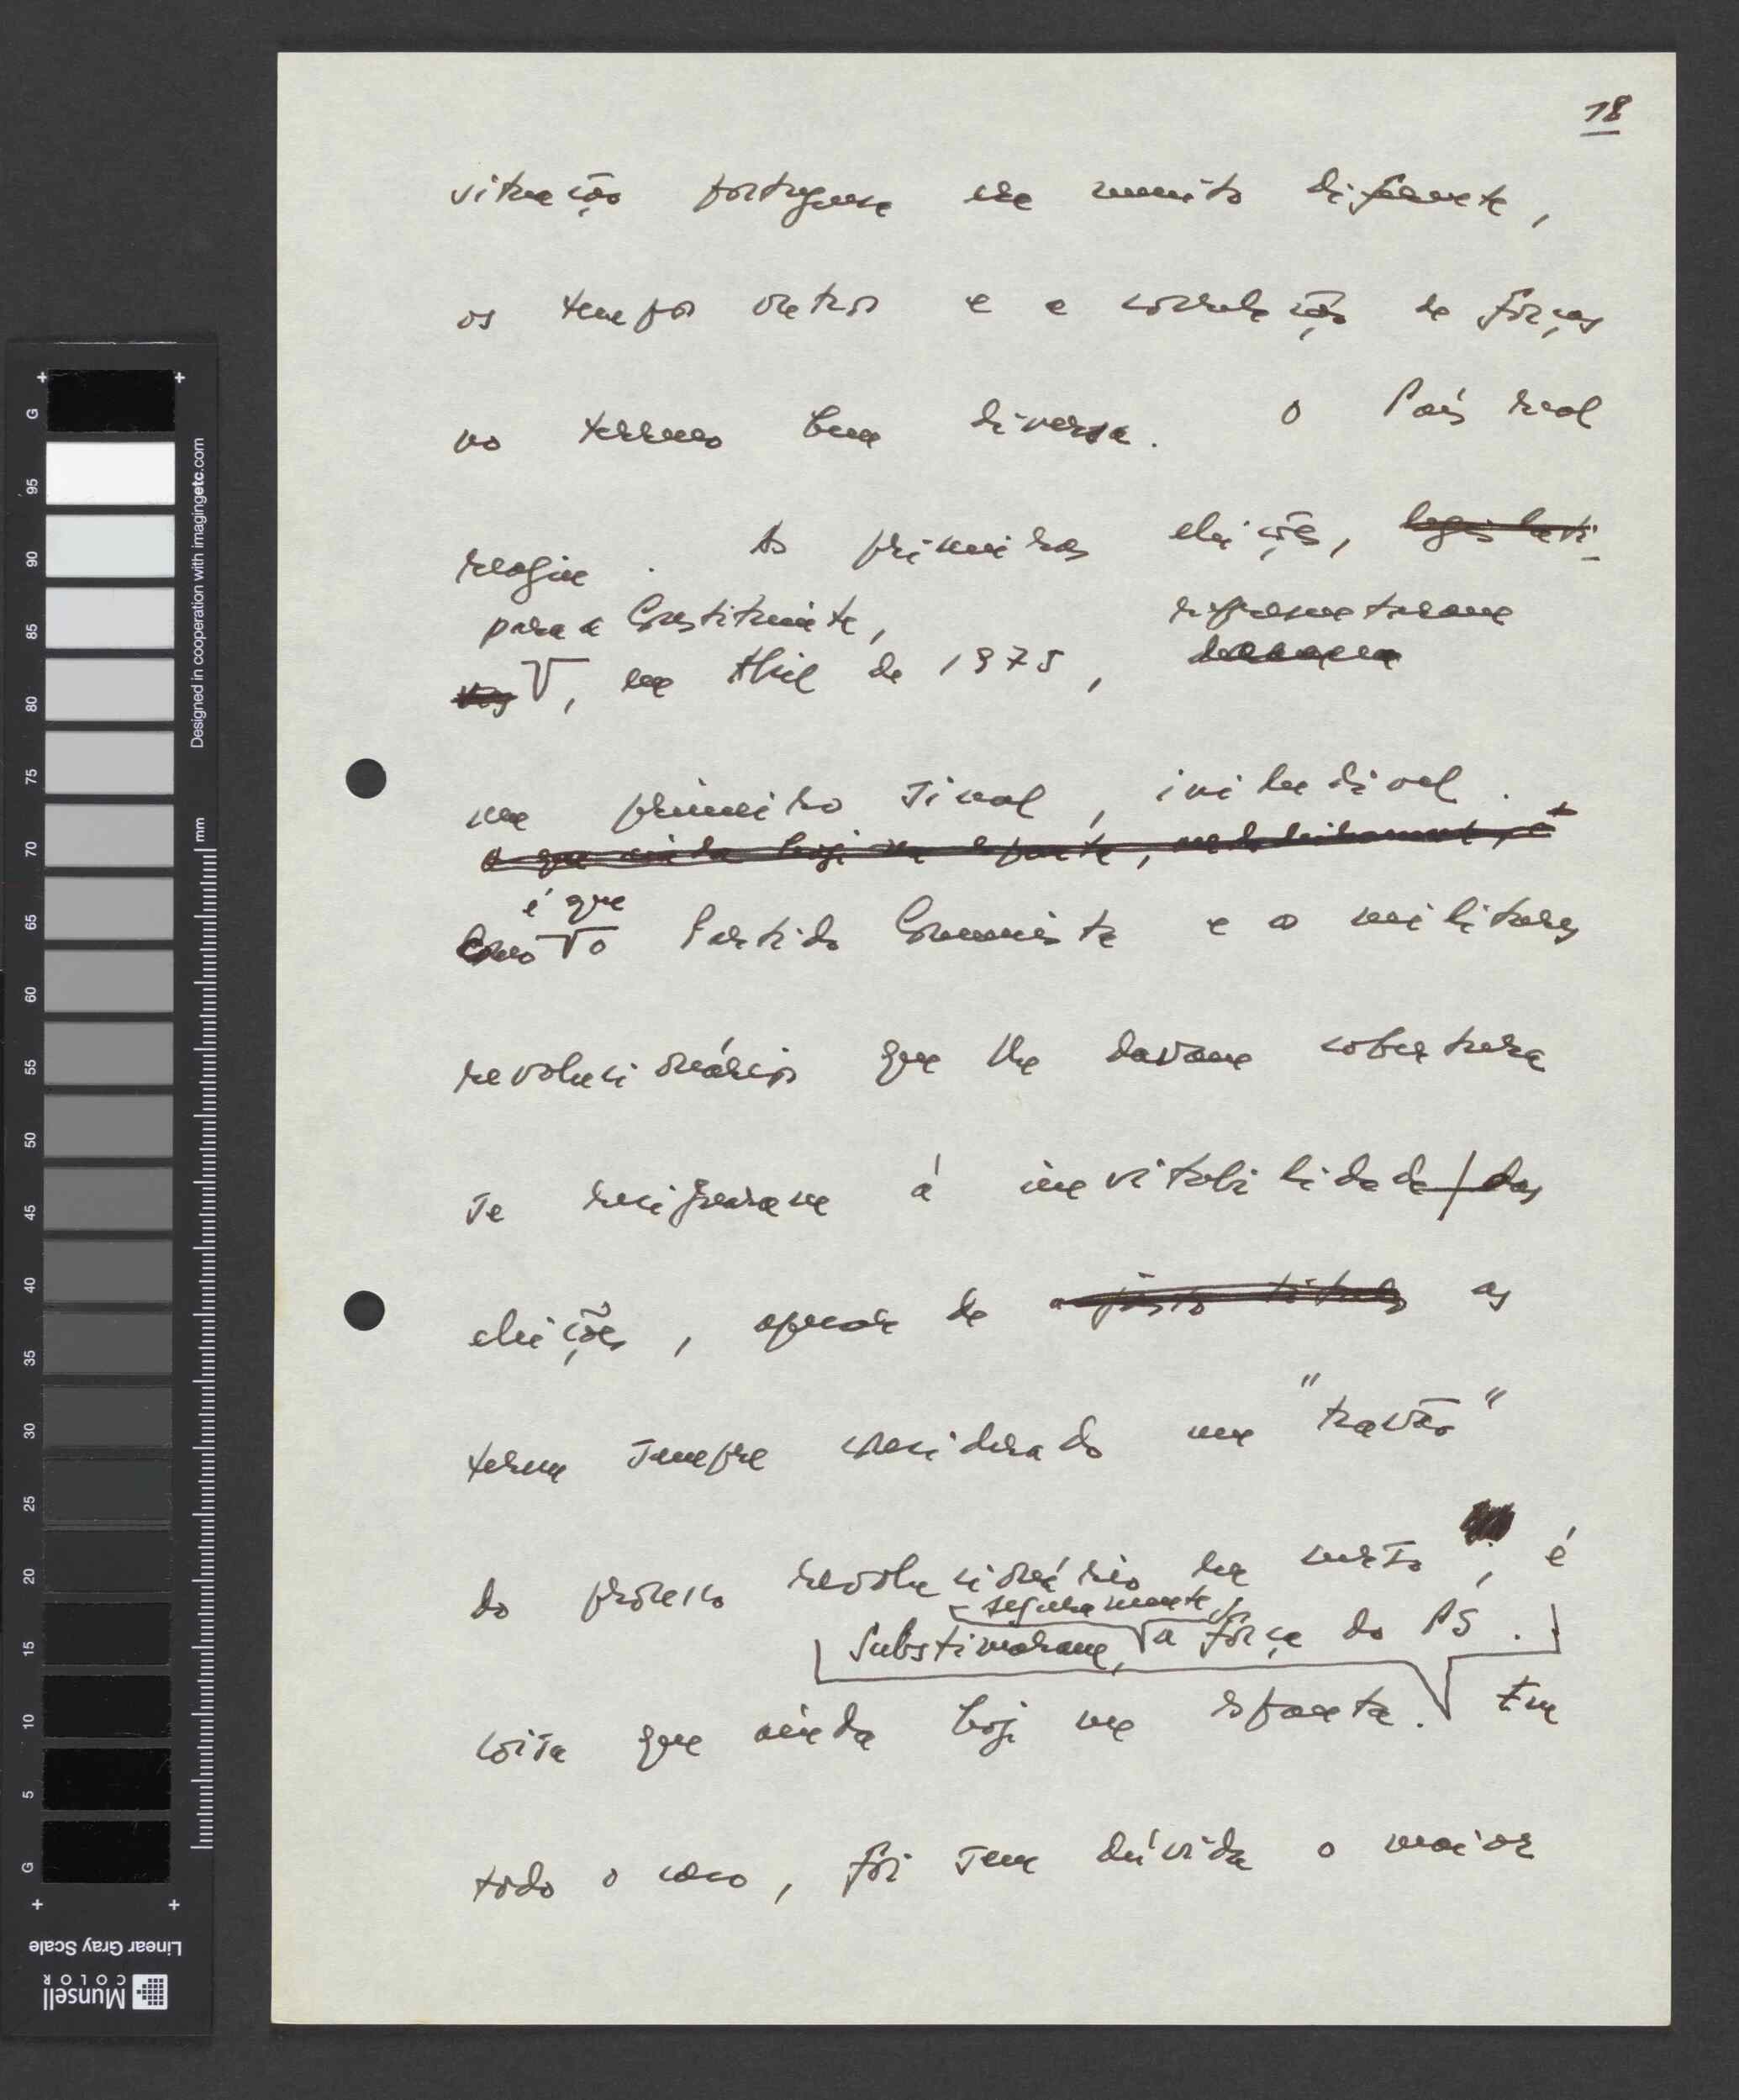 18
situação portuguesa era muito diferente,
os tempos outros e a correlação de forças
no terreno bem diversa. O País real
reagiu. As primeiras eleições, legislati-
para a Constituinte, representaram
vas, em Abril de 1975,
um primeiro sinal, iniludível.
o que ainda hoje me espanta, é
é que
Como o Partido Comunista e os militares
revolucionários que lhe davam cobertura
se resignaram à inevitabilidade das
eleições, apesar de a justo título as
terem sempre considerado um "travão"
do processo revolucionário em curso, é
seguramente
Substimaram, a força do PS.
coisa que ainda hoje me espanta. Em
todo o caso, foi sem dúvida o maior
G
95
90
85
80
75
70
65
60
55
50
45
40
35
30
25
20
15
10
5
G
mm
Designed in cooperation with imagingetc.com
Linear Gray Scale
Munsell
COLOR